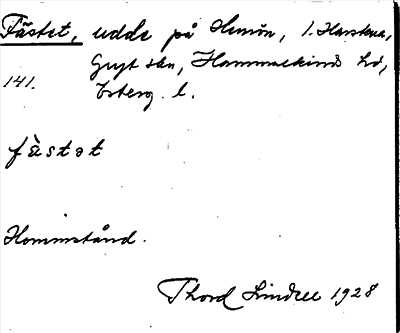 Fästet, udde på Hemön, 1. Harstena,
Gryt skn, Hammarkinds hd,
141. Österg. l.
fästat
Hemmastånd.
Thord Lindell 1928